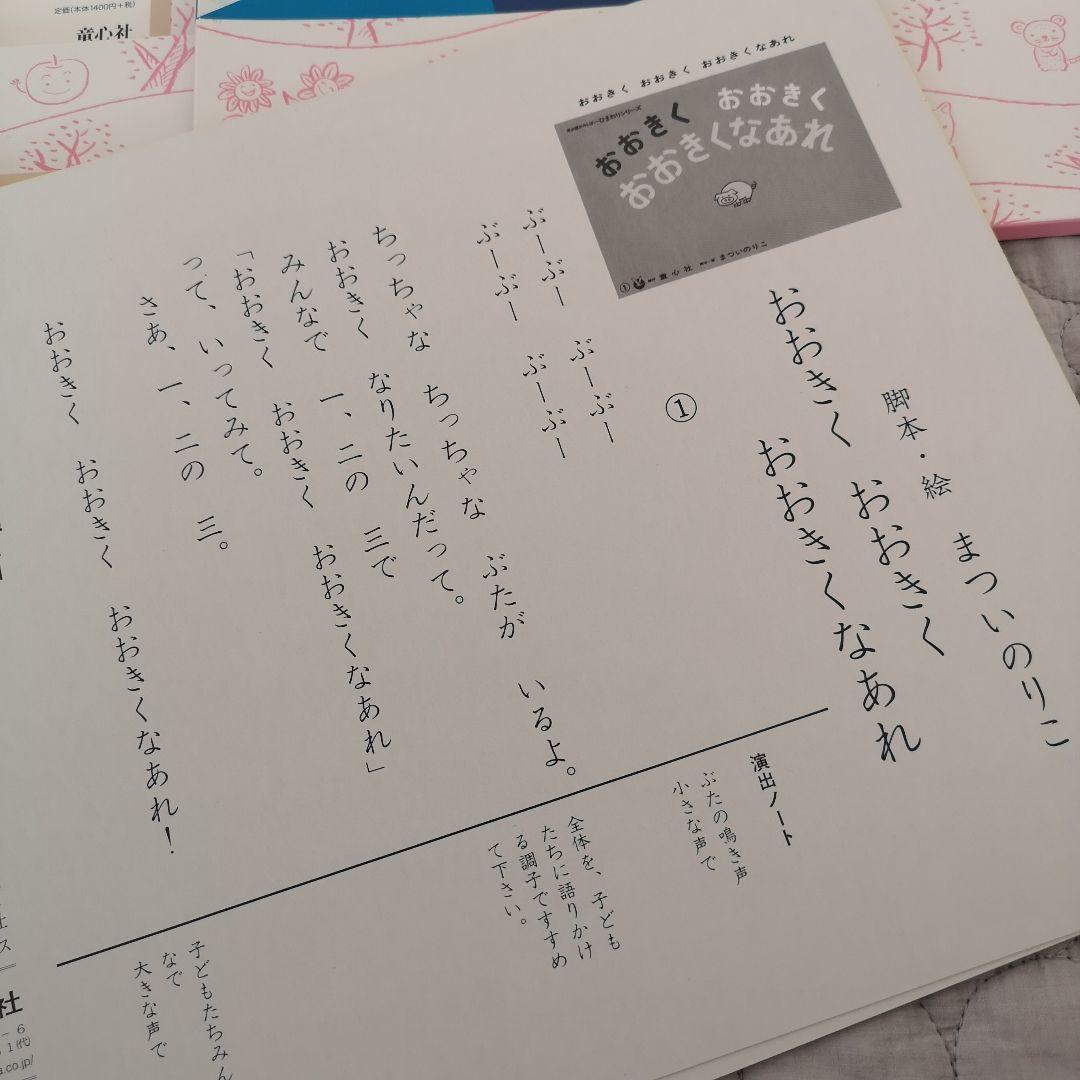 定価(本体1400円+税)
童心社
おおきく おおきく おおきくなあれ
おおきく おおきく
おおきくなあれ
① 童心社 まついのりこ
おおきく おおきく
おおきくなあれ
脚本・絵 まついのりこ
①
ぶーぶー ぶーぶー
ぶーぶー ぶーぶー
ちっちゃな ちっちゃな ぶたが いるよ。
おおきく なりたいんだって。
みんなで 一、二の 三で
「おおきく おおきく おおきくなあれ」
って、いってみて。
さあ、一、二の 三。
おおきく おおきく おおきくなあれ!
演出ノート
ぶたの鳴き声
小さな声で
全体を、子ども
たちに語りかけ
る調子ですすめ
て下さい。
子どもたちみん
なで
大きな声で